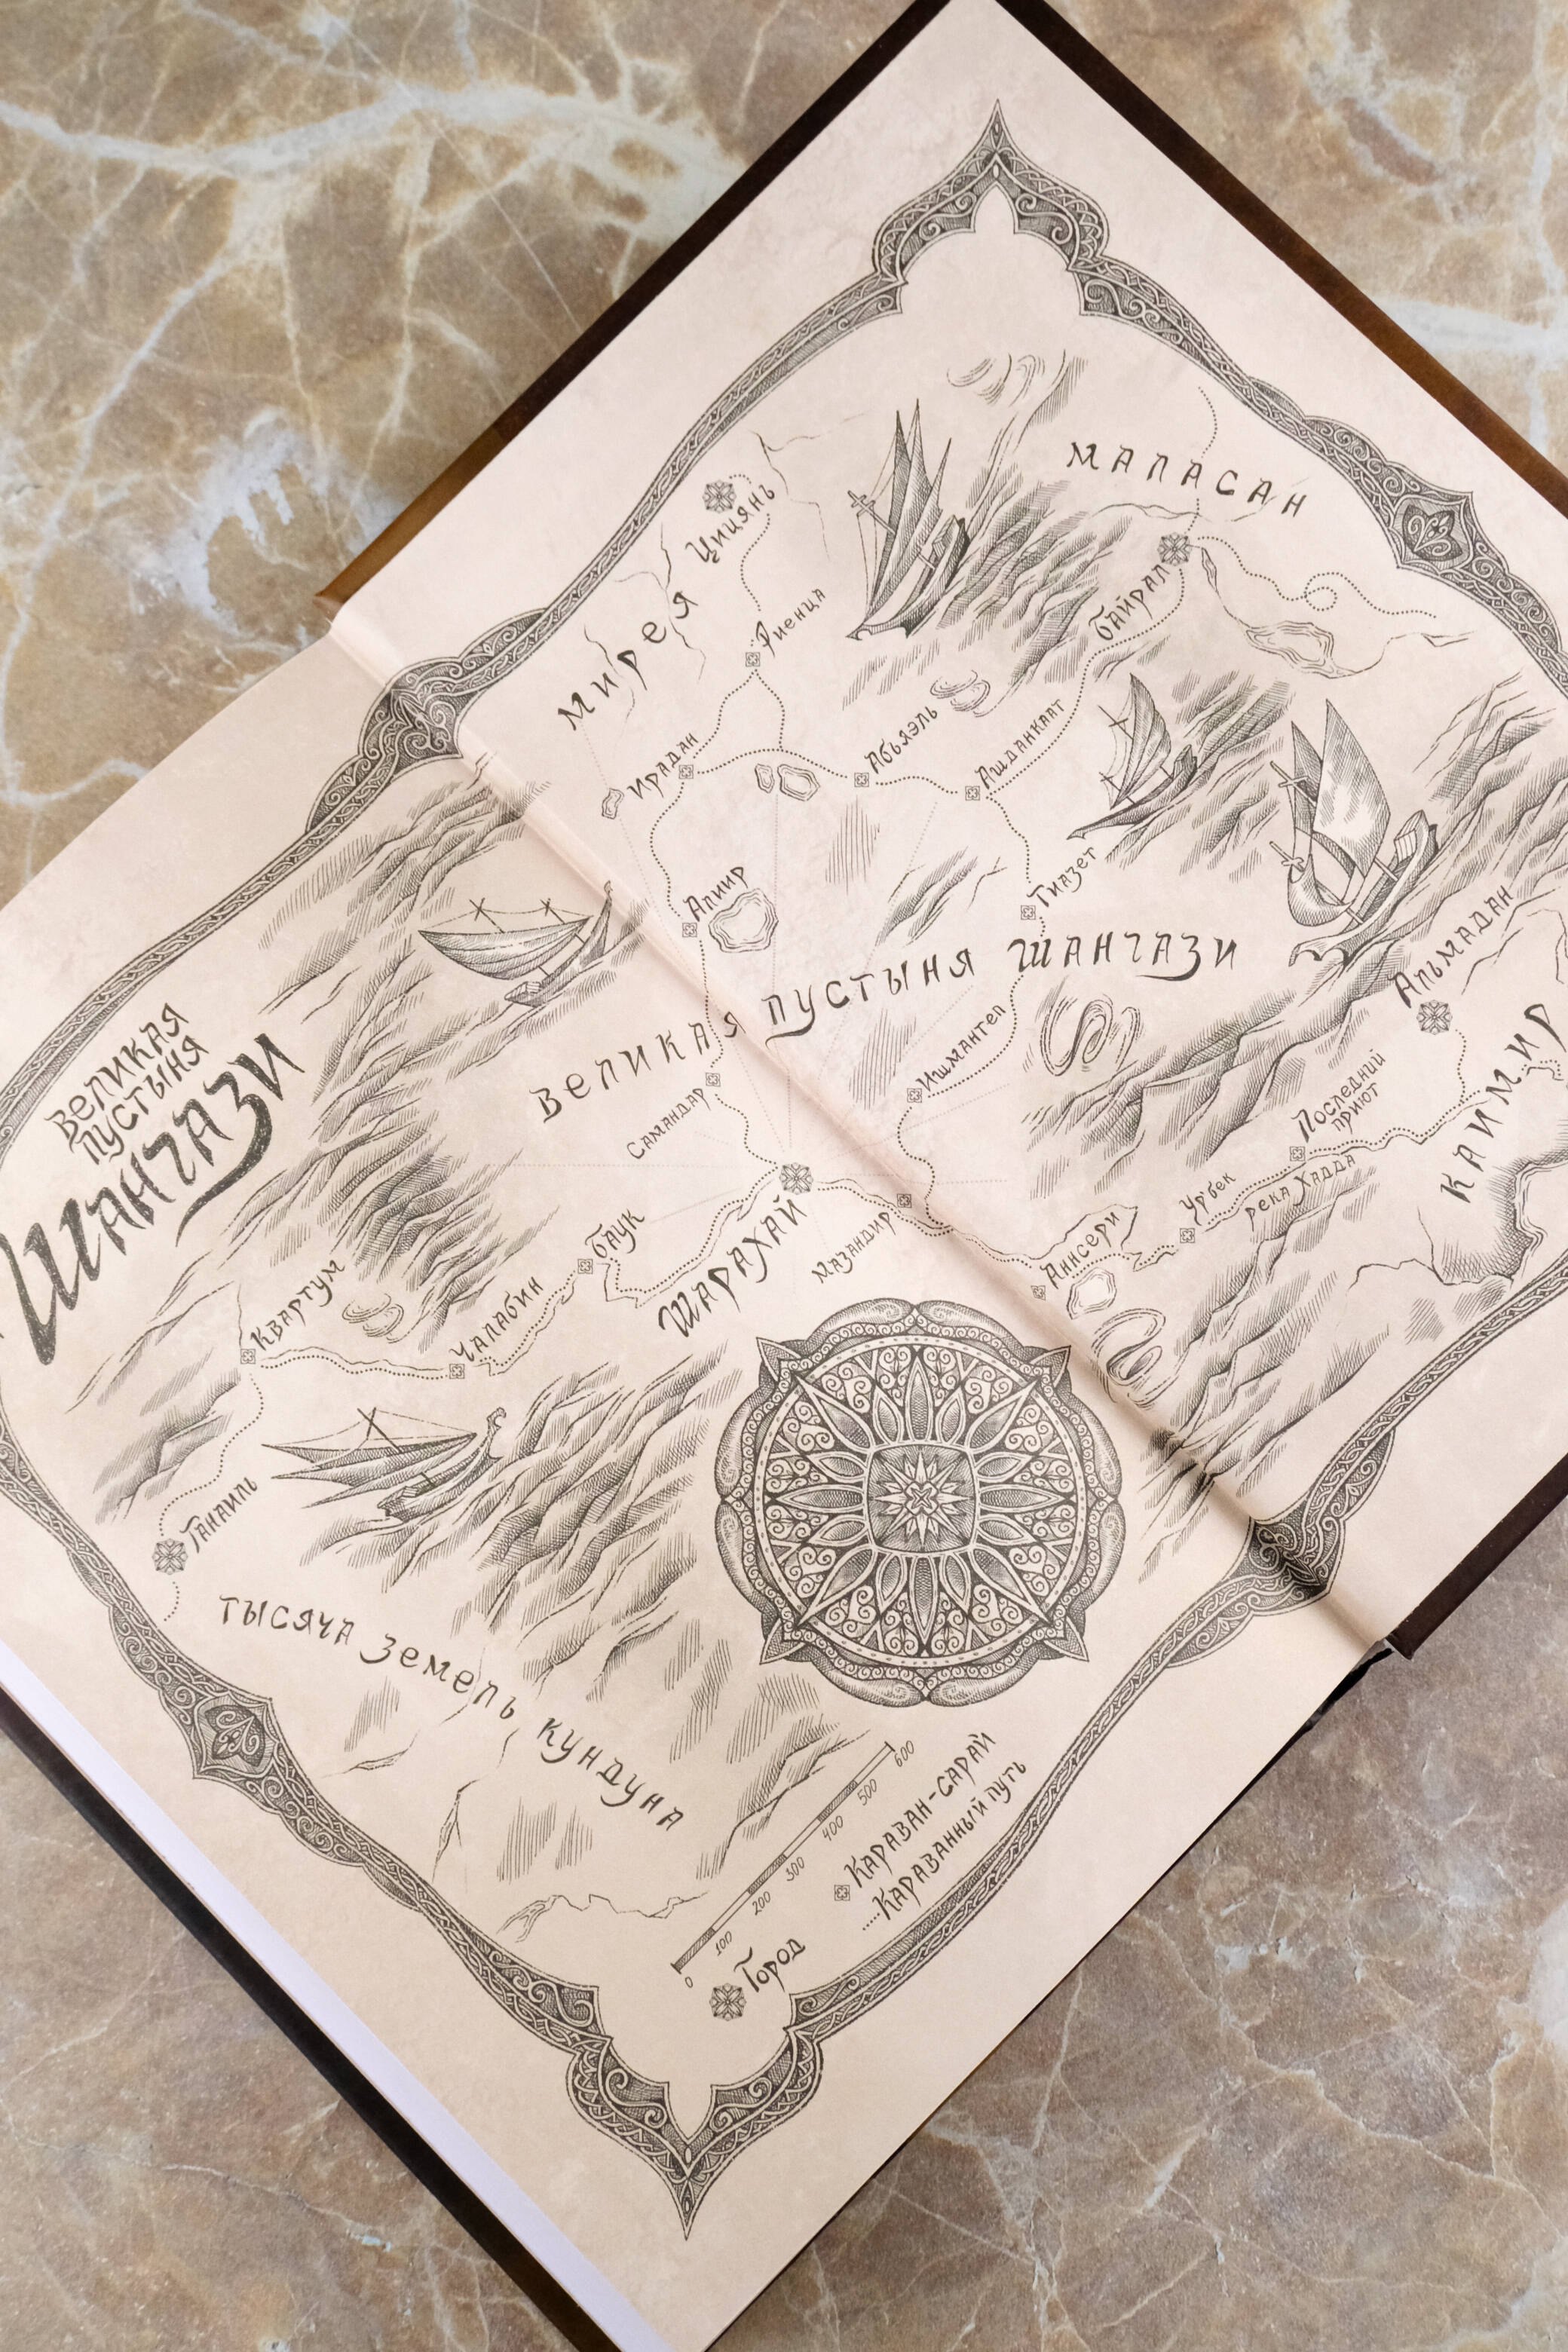 ВЕЛИКАЯ
ПУСТЫНЯ
ШАНГАЗИ
МАЛАСАН
МИРЕЯ
Цицянь
Риенца
Байрал
Ирадан
Абьяэль
Ашданкаат
Алиир
Тиазет
ВЕЛИКАЯ ПУСТЫНЯ ШАНГАЗИ
Альмадан
КАИМИР
Ишмантеп
Самандар
Последний
приют
Урбек
река Хадда
ШАРАХАЙ
Баук
Мазандир
Ансери
Квартум
Чалабин
Ганаиль
ТЫСЯЧА ЗЕМЕЛЬ КУНДУНА
0 100 200 300 400 500 600
Караван-сарай
Караванный путь
Город